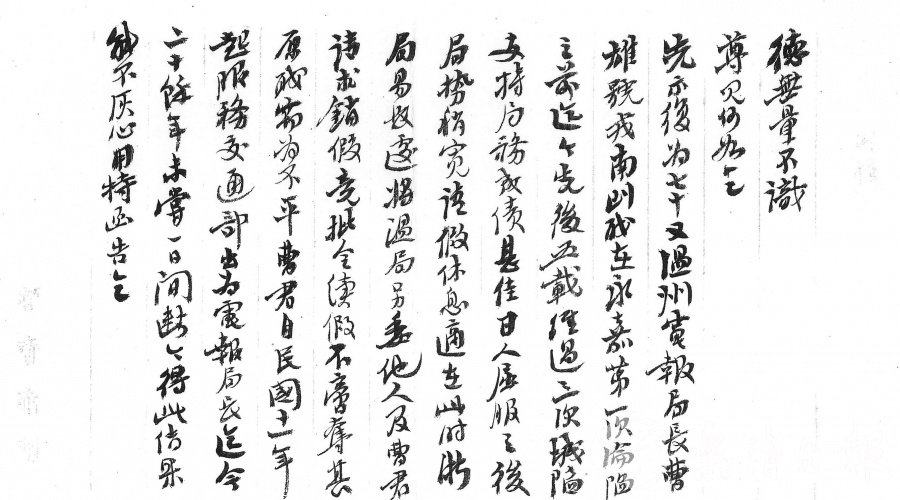 德無量不識
尊見何如之
先示後為七十又溫州電報局長曹
雄號戎南則我在永嘉第一次淪陷
之前迄今先後五載經過三次城陷
支持局務成績甚佳日人屈服之後
局勢稍定請假休息適在此時浙
局易長遽將溫局另委他人及曹君
請求銷假竟批令續假不啻奪其
原職弟為不平曹君自民國十一年
起服務交通部出為電報局長迄今
二十餘年未嘗一日間斷今得此結果
能不灰心用特函告之